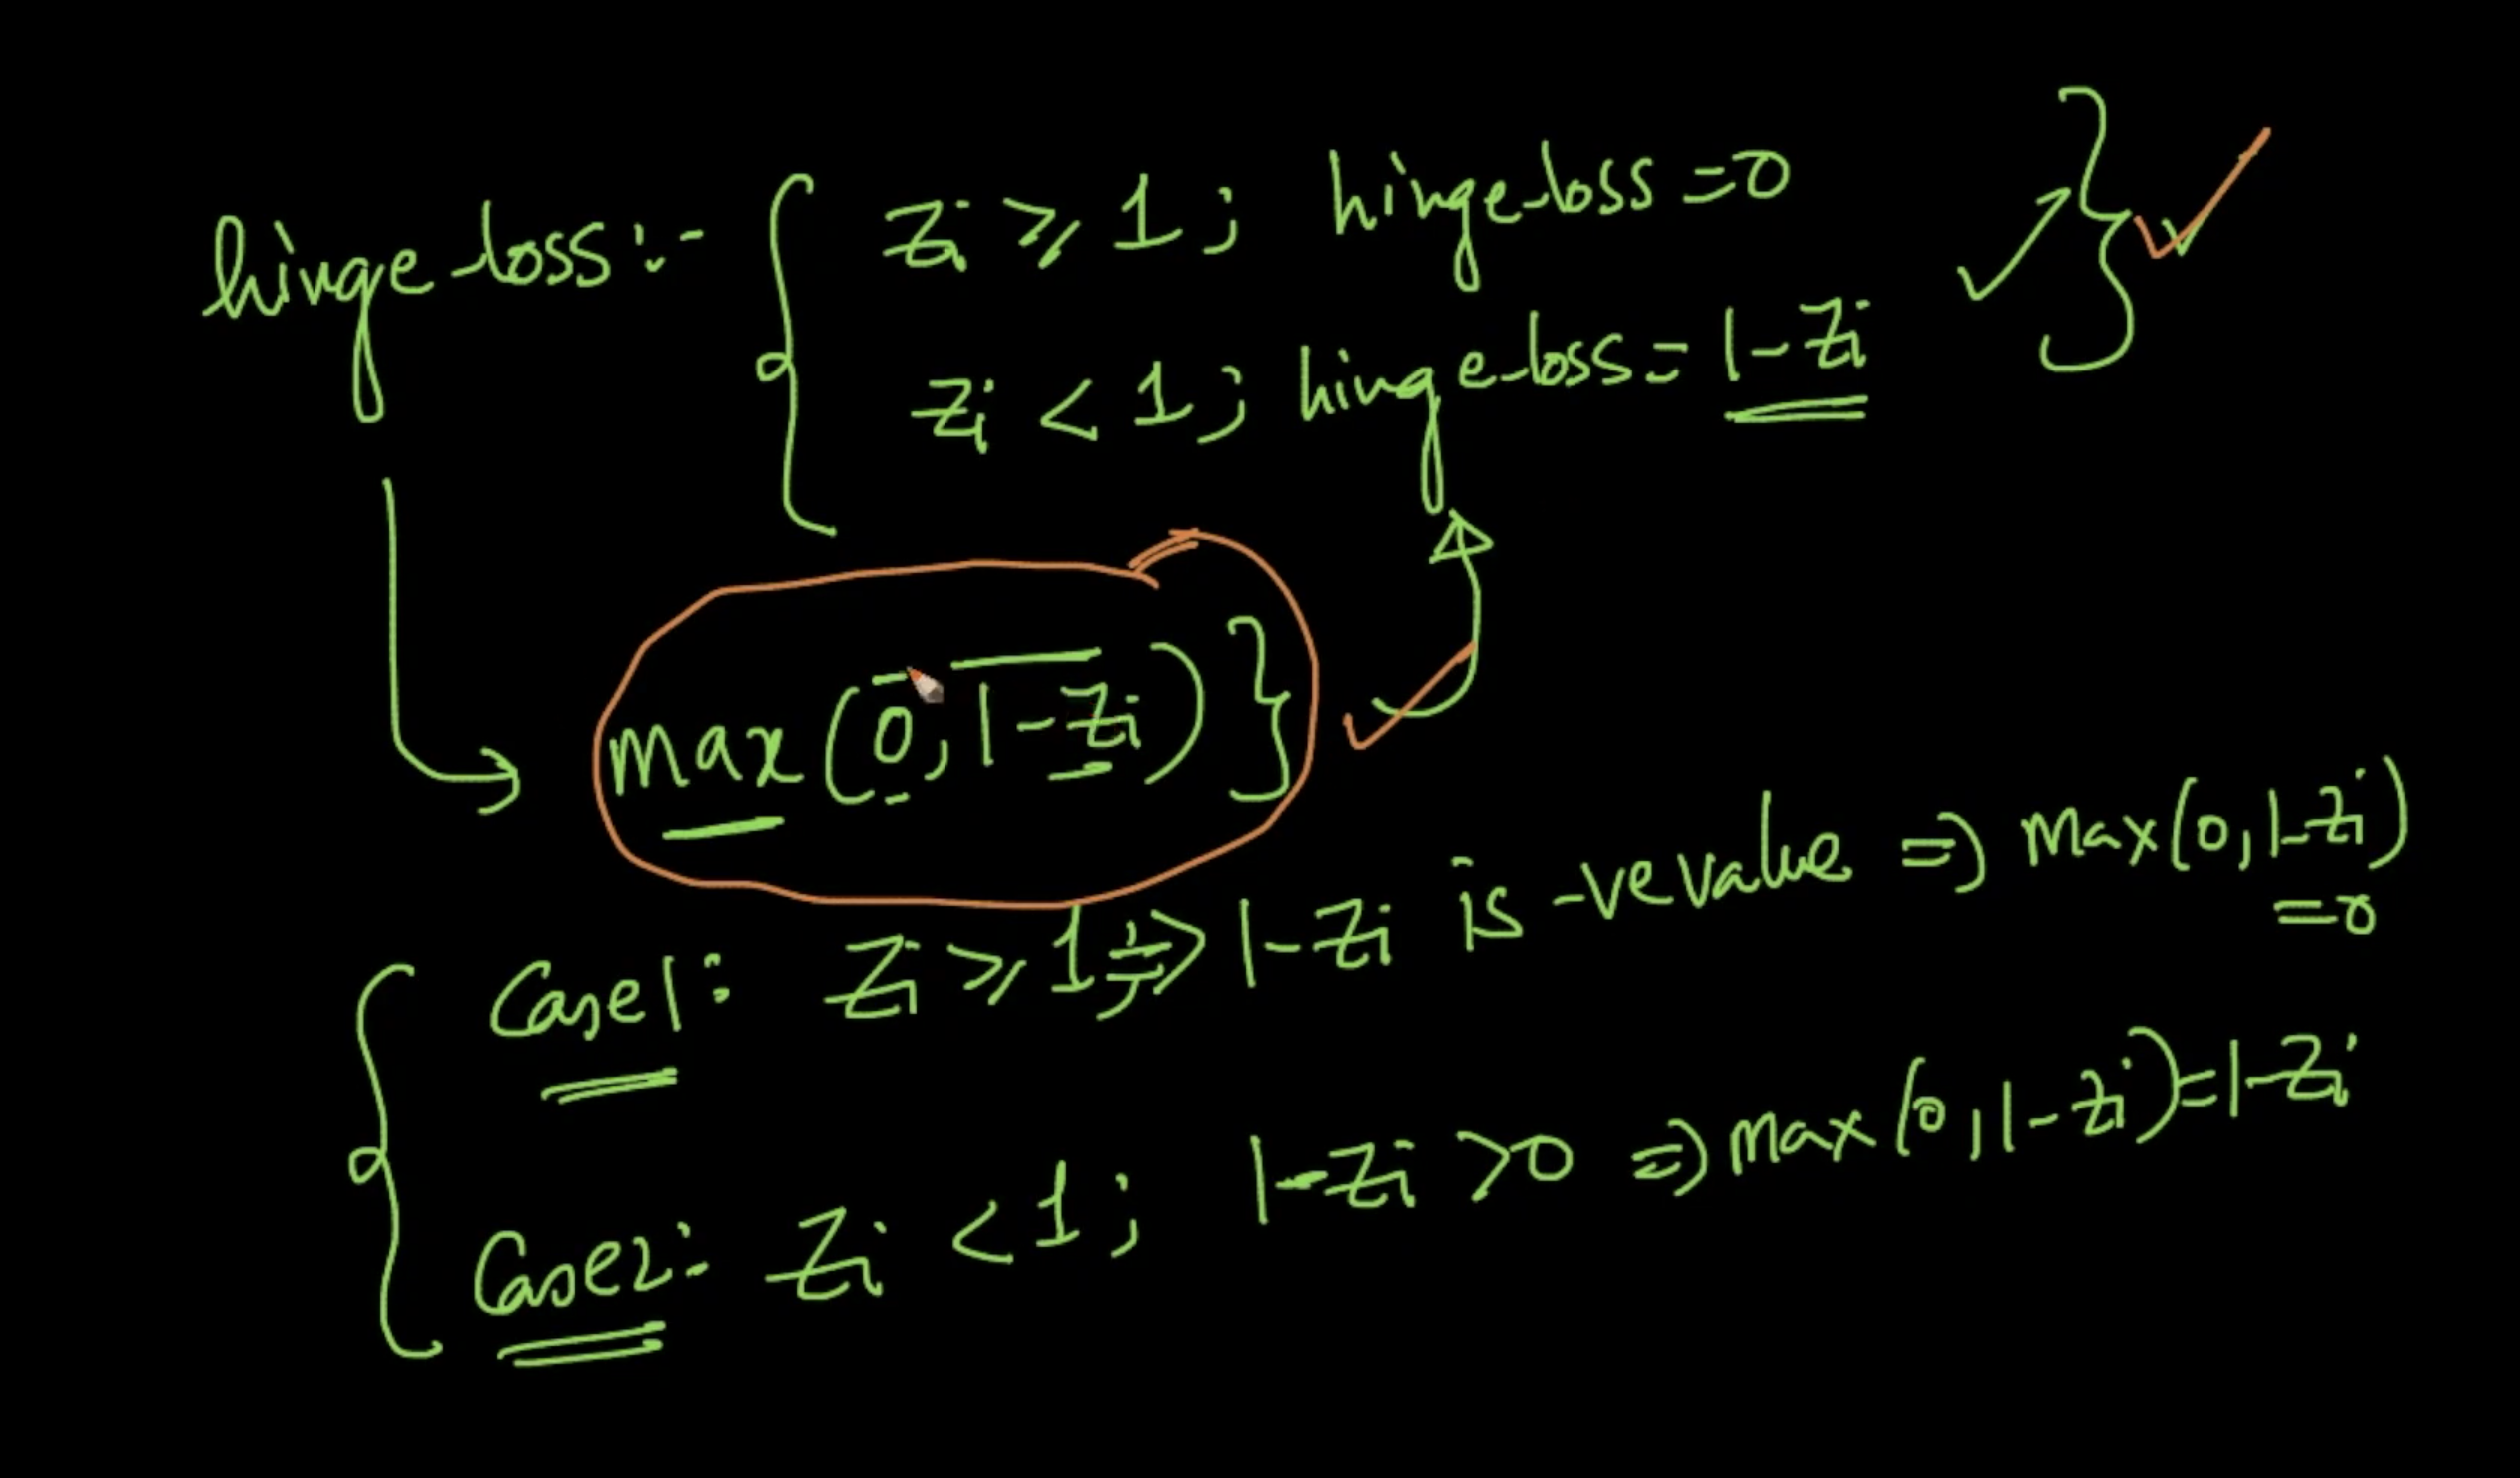 hinge-loss:- { zi ≥ 1; hinge-loss = 0
zi < 1; hinge-loss = 1-zi }
max(0, 1-zi)}
Case1: zi ≥ 1; ⇒ 1-zi is -ve value ⇒ max(0, 1-zi)
=0
Case2: zi < 1; 1-zi > 0 ⇒ max(0, 1-zi) = 1-zi